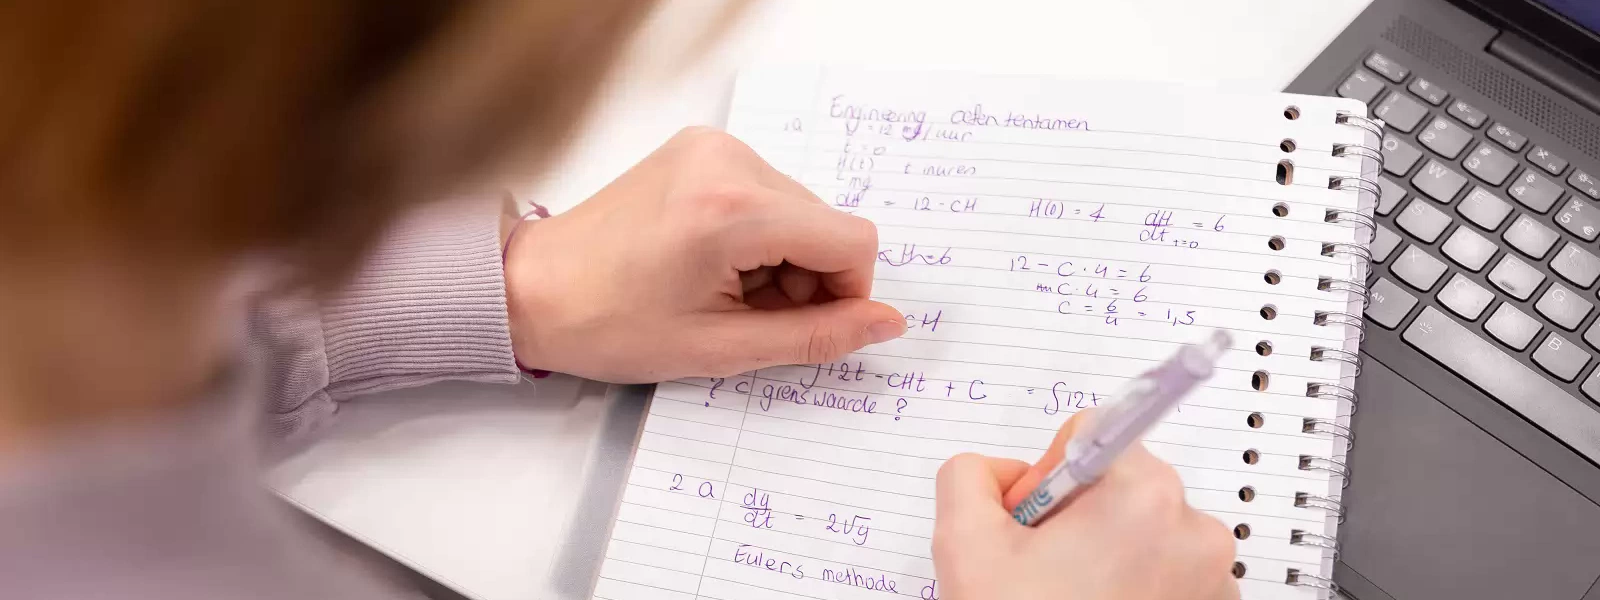 Engineering oefen tentamen
1a v = 12 /uur
t = 0
H(t) t in uren
mg
dH = 12 - CH H(0) = 4 dH/dt t=0 = 6
12 - C · 4 = 6
C · 4 = 6
C = 6/4 = 1,5
CH
∫12t - CHt + C = ∫12t
? C grenswaarde ?
2 a dy/dt = 2√y
Eulers methode d